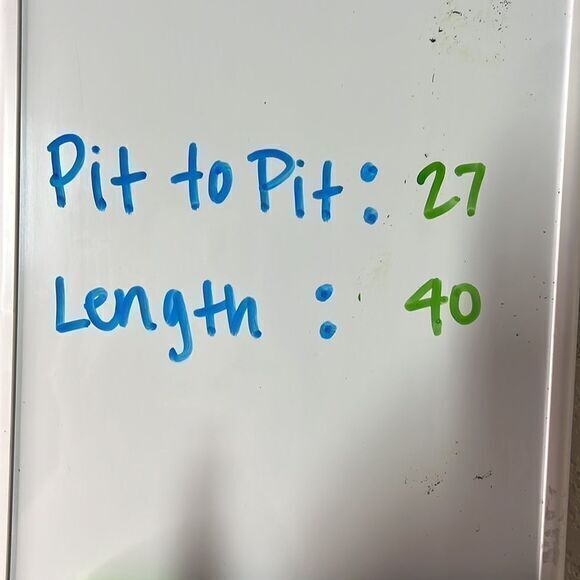 Pit to Pit: 27
Length : 40